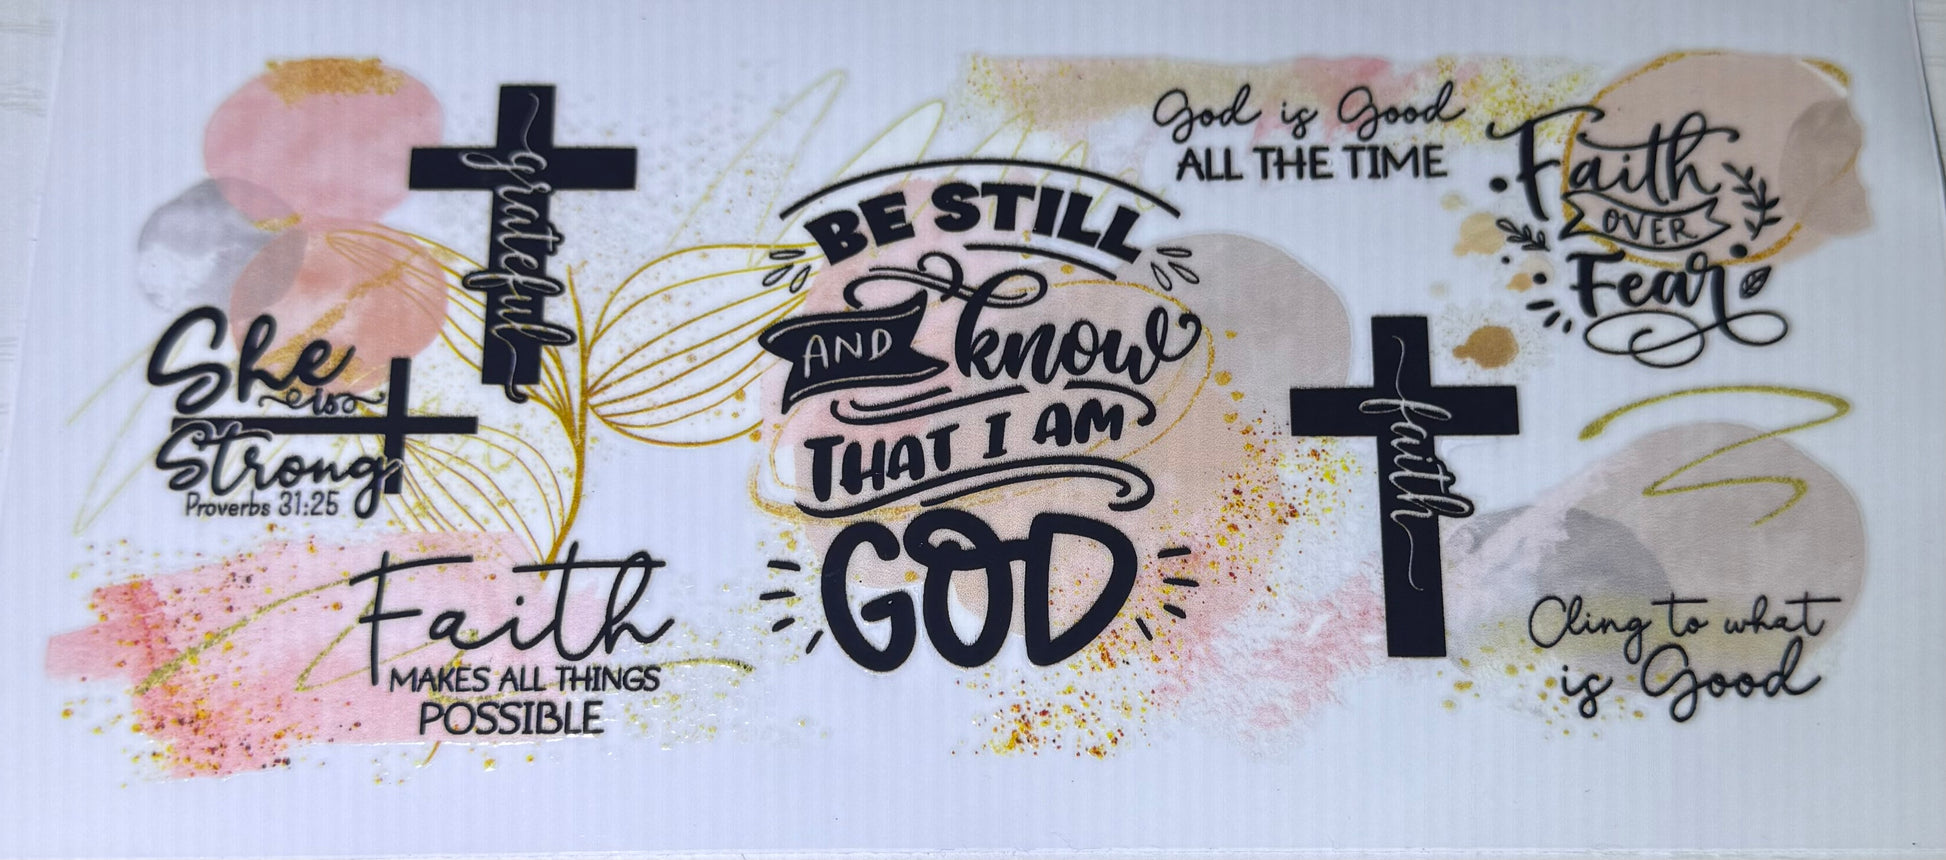 grateful
She
is
Strong
Proverbs 31:25
Faith
MAKES ALL THINGS
POSSIBLE
BE STILL
AND know
THAT I AM
GOD
God is Good
ALL THE TIME
Faith
OVER
Fear
faith
Cling to what
is Good